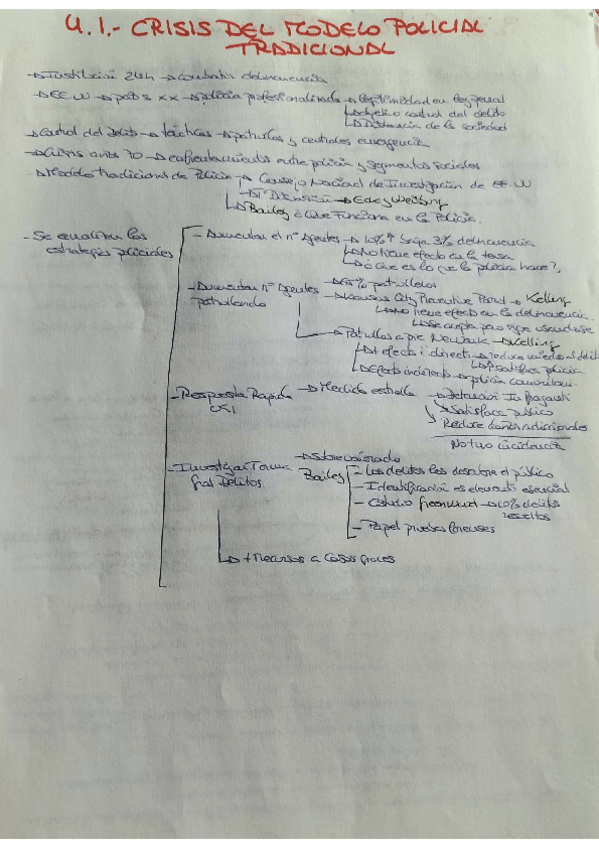 4.1.- CRISIS DEL MODELO POLICIAL
TRADICIONAL
→ Institución 24h → combatir delincuencia
→ EE UU → ppios s. XX → policía profesionalizada → legitimidad en ley penal
↳ objetivo control del delito
↳ Distancia de la sociedad
→ Control del delito → tácticas → patrullas y centrales emergencia
→ Crisis años 70 → enfrentamientos entre policía y segmentos sociales
→ Modelo tradicional de Policía → Consejo Nacional de Investigación de EE UU
↳ Eck y Weisburg
↳ Bailey ¿Qué Funciona en la Policía.
- Se cuestionan las
estrategias policiales
- Aumentar el nº Agentes → 10% ↑ baja 3% delincuencia
↳ No tiene efecto en la tasa
↳ ¿Qué es lo que la policía hace?,
- Aumentar nº Agentes
patrullando
→ patrulleros
→ Kansas City Preventive Patrol → Kelling
↳ No tiene efecto en la delincuencia.
↳ Se acepta pero sigue usándose
↳ Patrullas a pie Newark → Kelling
↳ efecto directo → reduce miedo al delito
↳ satisfac policía.
↳ Efecto indirecto → policía comunitari.
- Respuesta Rápida
→ Medida estrella → Detención In fraganti
↘ Satisface público
↘ Reduce daños adicionales
No tuvo incidencia
- Investigar
Delitos
→ Sobrevalorado
Bailey
- Los delitos los descubre el público
- Identificación es elemento esencial
- Estudio Greenwood → 10% delitos
resueltos
- Papel pruebas forenses
↳ + Recursos a casos graves